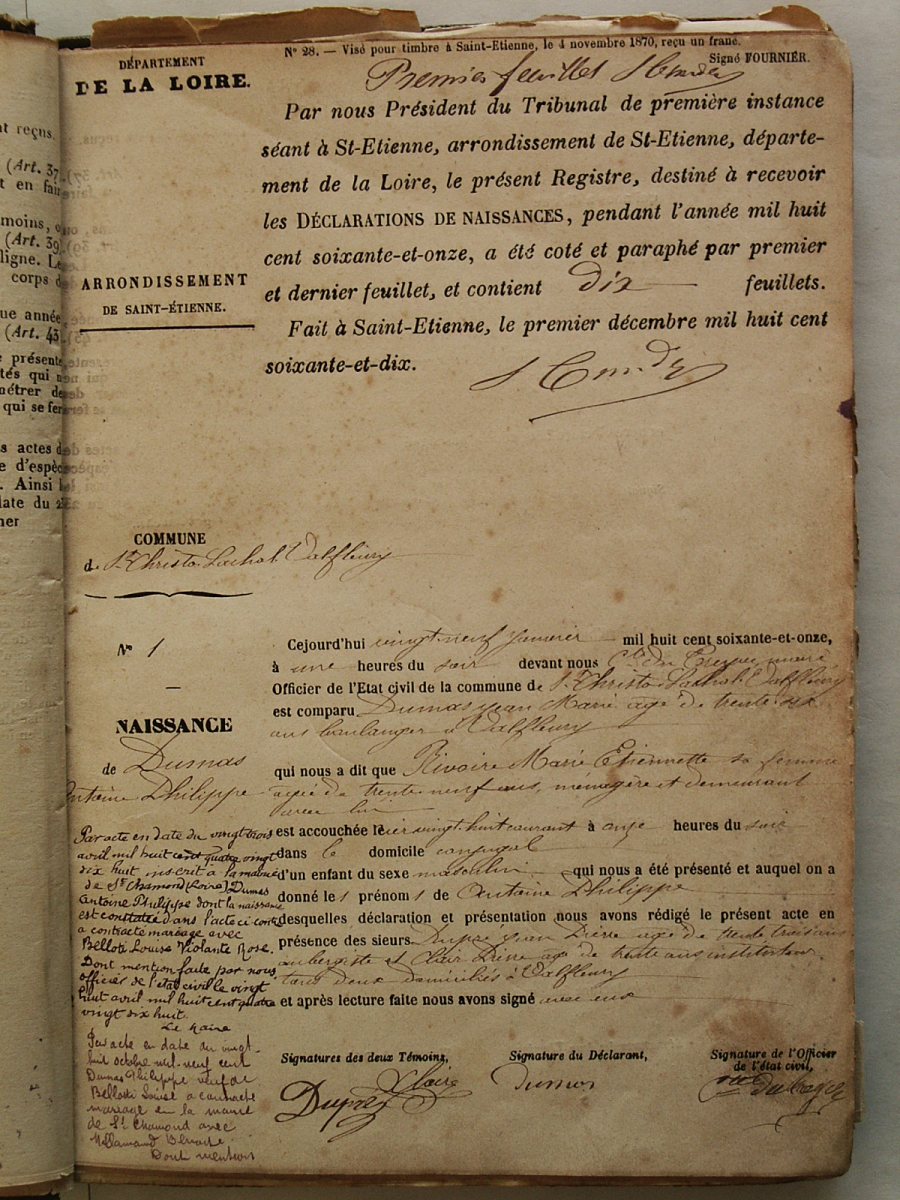 DÉPARTEMENT
DE LA LOIRE.
N° 28. — Visé pour timbre à Saint-Etienne, le 4 novembre 1870, reçu un franc.
Signé FOURNIER.
Premier feuillet
Par nous Président du Tribunal de première instance
séant à St-Etienne, arrondissement de St-Etienne, départe-
ment de la Loire, le présent Registre, destiné à recevoir
les DÉCLARATIONS DE NAISSANCES, pendant l'année mil huit
cent soixante-et-onze, a été coté et paraphé par premier
et dernier feuillet, et contient dix feuillets.
Fait à Saint-Etienne, le premier décembre mil huit cent
soixante-et-dix.
ARRONDISSEMENT
DE SAINT-ÉTIENNE.
t reçus,
(Art. 37
t en fair
moins, o
(Art. 39
ligne. Le
corps d
ue année
(Art. 43
présente
tés qui
métrer de
qui se fer
s actes d
e d'espèc
. Ainsi
date du 2
ner
COMMUNE
de St Christo Lachal Valfleury
N° 1
NAISSANCE
de Dumas
Antoine Philippe
Cejourd'hui vingt neuf janvier mil huit cent soixante-et-onze,
à une heures du soir devant nous maire
Officier de l'Etat civil de la commune de St Christo Lachal Valfleury
est comparu Dumas Jean Marie agé de trente six
ans boulanger à Valfleury
qui nous a dit que Rivoire Marie Etiennette sa femme
agée de trente neuf ans, ménagère et demeurant
avec lui
est accouchée le hier vingt huit courant à onze heures du soir
dans le domicile conjugal
d'un enfant du sexe masculin qui nous a été présenté et auquel on a
donné les prénoms de Antoine Philippe
desquelles déclaration et présentation nous avons rédigé le présent acte en
présence des sieurs Dupré Jean Pierre age de trente trois ans
aubergiste et Clair Pierre age de trente ans instituteur
tous deux domiciliés à Valfleury
et après lecture faite nous avons signé avec eux
Par acte en date du vingt trois
avril mil huit cent quatre vingt
dix huit inscrit à la mairie
de St Chamond (Loire) Dumas
Antoine Philippe dont la naissance
est constatée dans l'acte ci contre
a contracté mariage avec
Bellott Louise Violante Rose.
Dont mention faite par nous
officier de l'état civil le vingt
huit avril mil huit cent quatre
vingt dix huit.
Le maire
Par acte en date du vingt
huit octobre mil neuf cent
Dumas Philippe veuf de
Bellott Louise a contracté
mariage en la mairie
de St Chamond avec
Dont mention
Signatures des deux Témoins,
Signature du Déclarant,
Signature de l'Officier
de l'état civil,
Claire
Dupré
Dumas